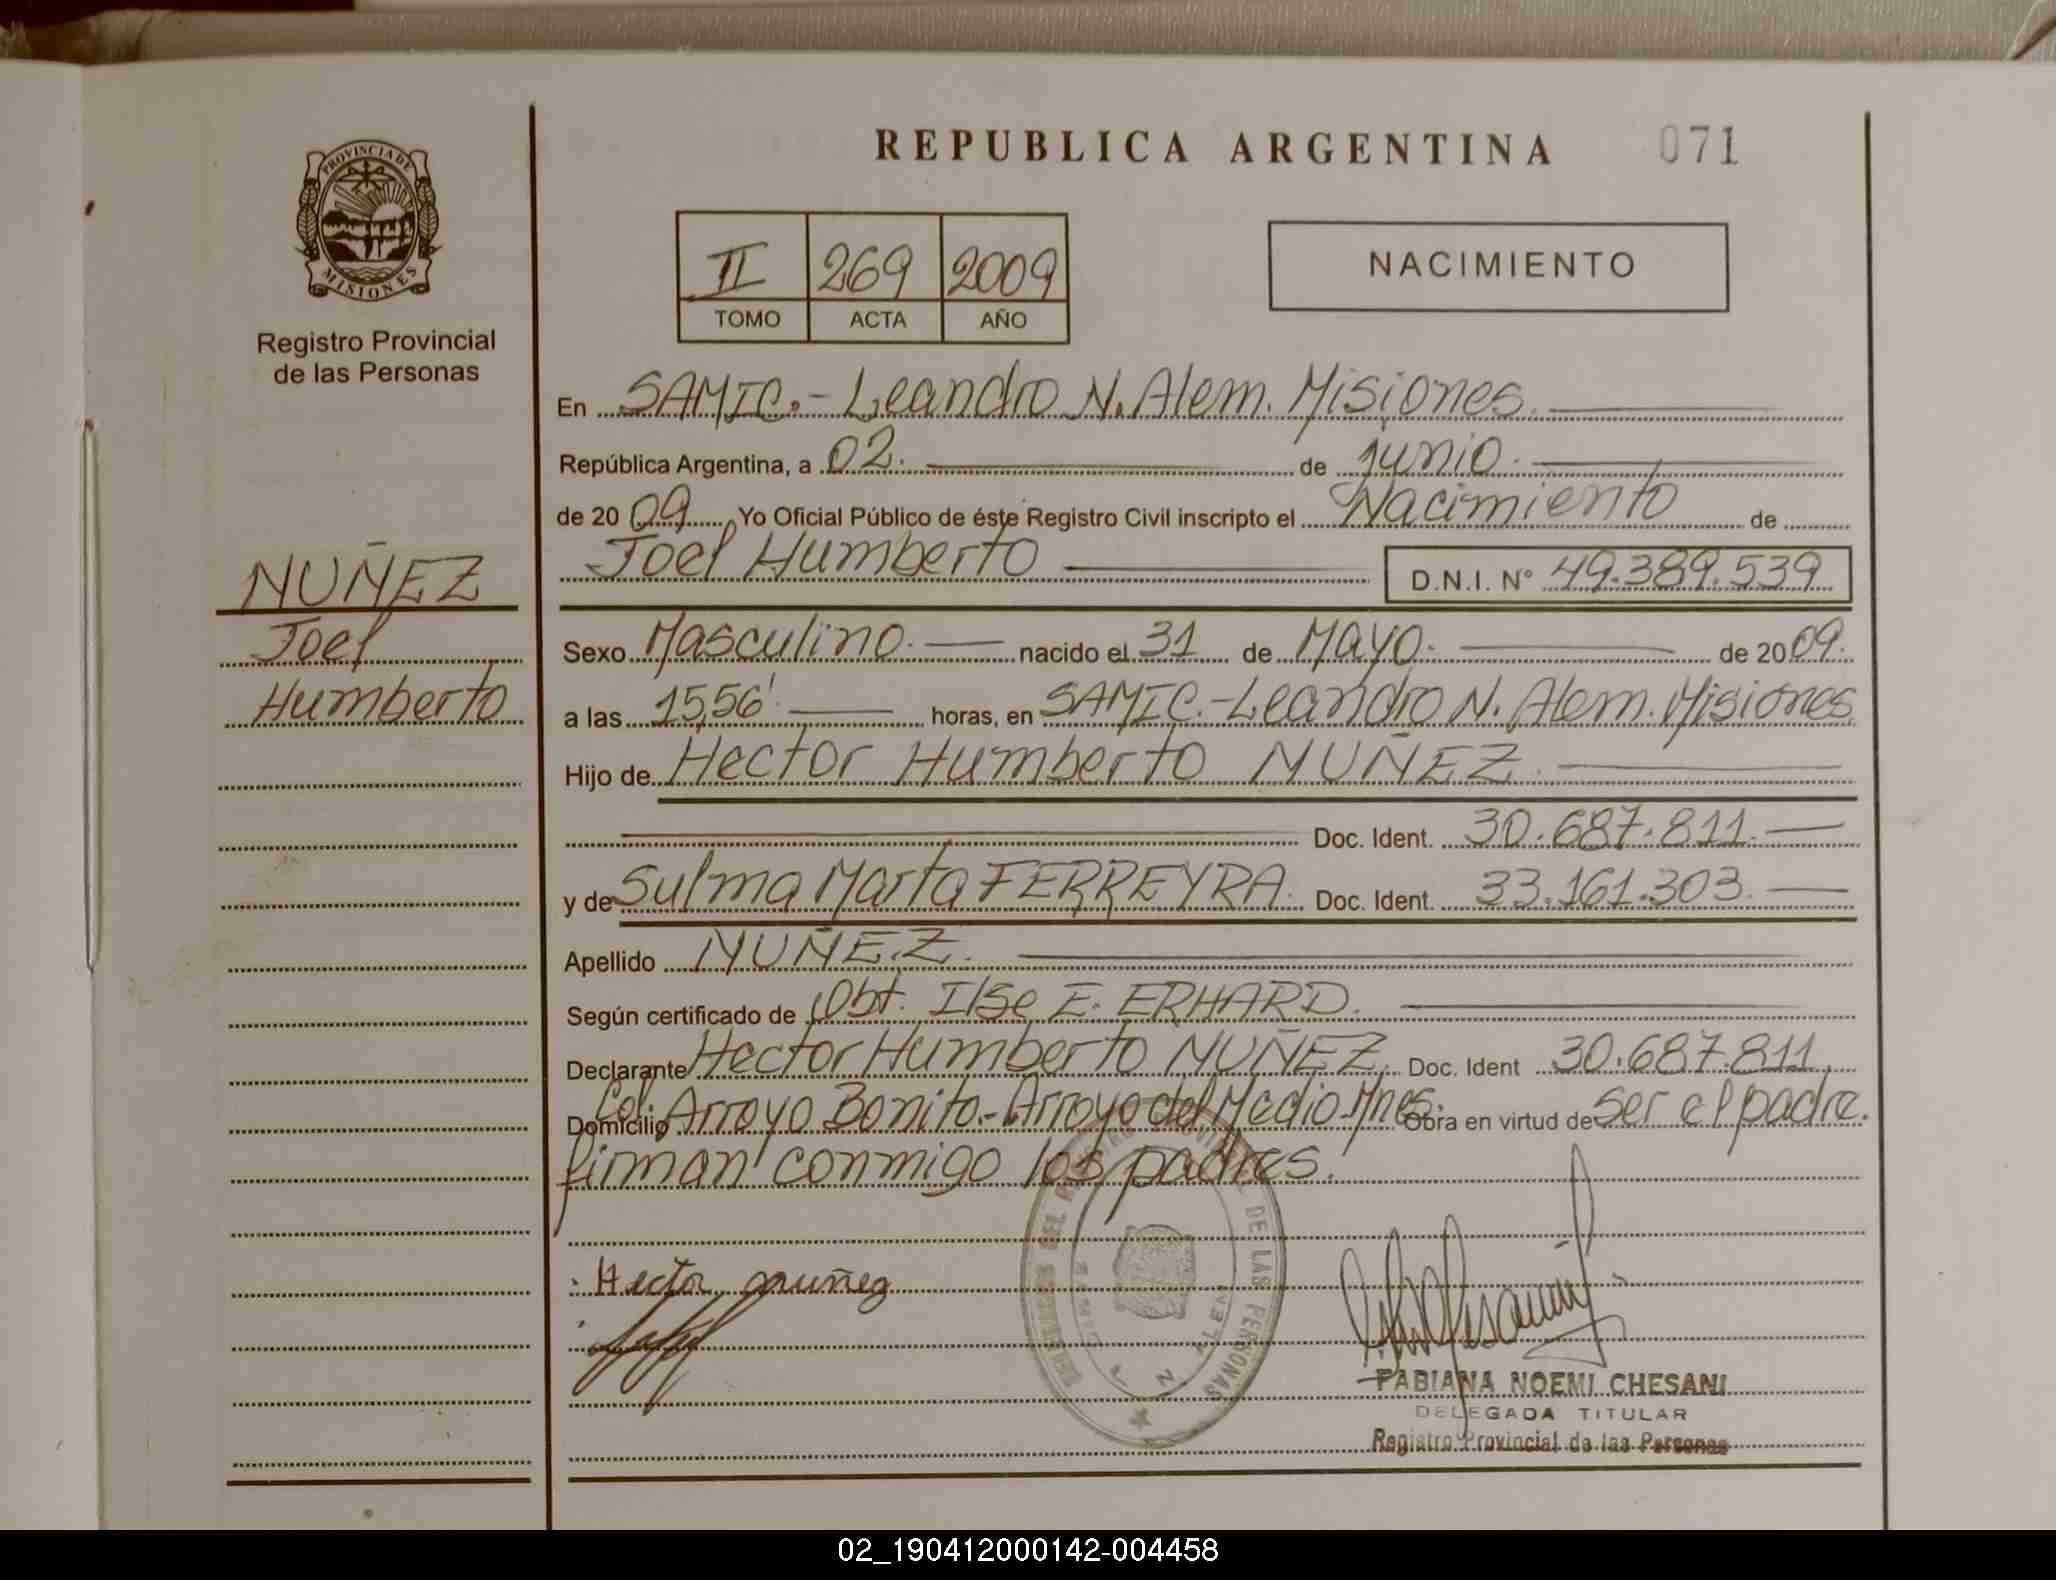 REPUBLICA ARGENTINA 071
PROVINCIA DE
MISIONES
Registro Provincial
de las Personas
NUÑEZ
Joel
Humberto
II 269 2009
TOMO ACTA AÑO
NACIMIENTO
En SAMIC.- Leandro N. Alem. Misiones.
República Argentina, a 02. de junio.
de 2009 Yo Oficial Público de éste Registro Civil inscripto el Nacimiento de
Joel Humberto D.N.I. Nº 49.389.539
Sexo Masculino. nacido el 31 de Mayo. de 2009.
a las 15,56' horas, en SAMIC.-Leandro N. Alem. Misiones
Hijo de Hector Humberto NUÑEZ.
Doc. Ident. 30.687.811.
y de Sulma Marta FERREYRA. Doc. Ident. 33.161.303.
Apellido NUÑEZ.
Según certificado de Obt. Ilse E. ERHARD.
Declarante Hector Humberto NUÑEZ. Doc. Ident 30.687.811.
Domicilio Col. Arroyo Bonito.- Arroyo del Medio. Mnes. Obra en virtud de ser el padre.
firman conmigo los padres.
Hector nuñez
DEL REGISTRO PROVINCIAL DE LAS PERSONAS
L. N. ALEM
FABIANA NOEMI CHESANI
DELEGADA TITULAR
Registro Provincial de las Personas
02_190412000142-004458